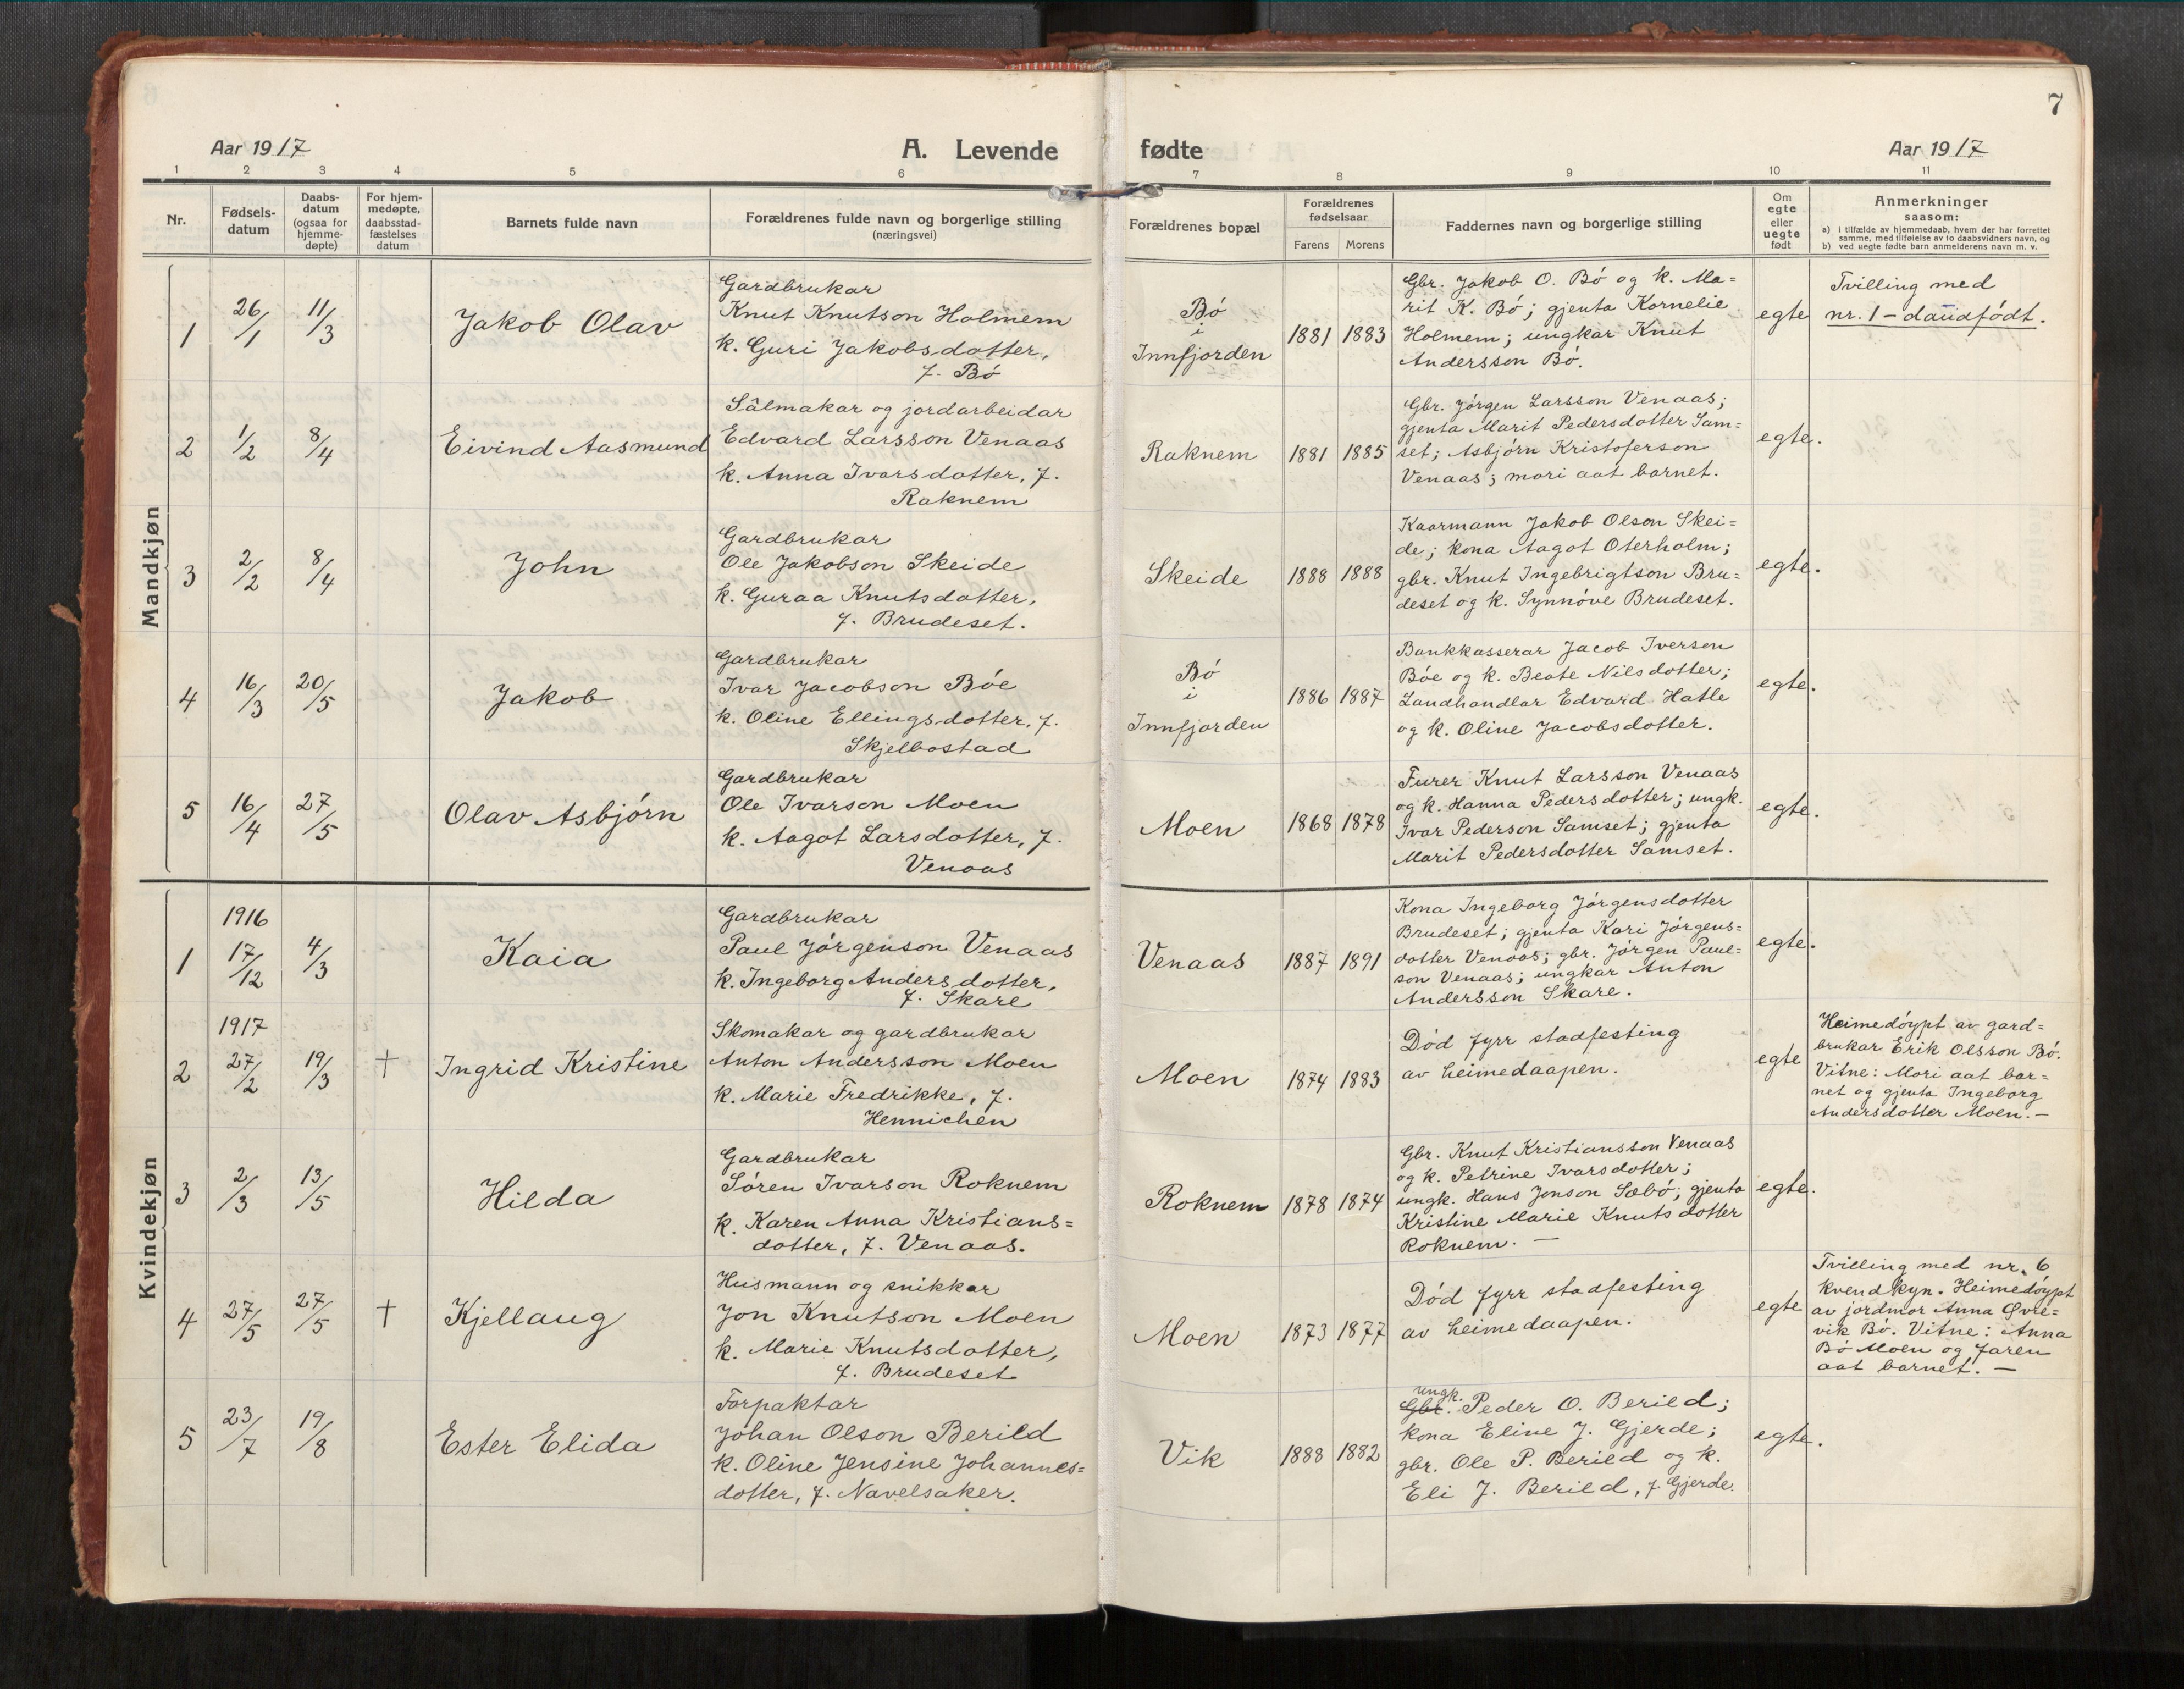 7
Aar 1917
A. Levende
fødte
Aar 1917
1 2 3 4 5 6 7 8 9 10 11
Nr.
Fødsels-
datum
Daabs-
datum
(ogsaa for
hjemme-
døpte)
For hjem-
medøpte,
daabsstad-
fæstelses
datum
Barnets fulde navn
Forældrenes fulde navn og borgerlige stilling
(næringsvei)
Forældrenes bopæl
Forældrenes
fødselsaar
Farens Morens
Faddernes navn og borgerlige stilling
Om
egte
eller
uegte
født
Anmerkninger
saasom:
a) i tilfælde av hjemmedaab, hvem der har forrettet
samme, med tilføielse av to daabsvidners navn, og
b) ved uegte fødte barn anmelderens navn m. v.
Mandkjøn
1
26/1
11/3
Jakob Olav
Gardbrukar
Knut Knutson Holmem
k. Guri Jakobsdotter,
f. Bó
Bó
i
Innfjorden
1881 1883
Gbr. Jakob O. Bó og k. Ma=
rit K. Bó; gjenta Kornelie
Holmem; ungkar Knut
Andersson Bó.
egte
Tvilling med
nr. 1 - daudfódt.
2
1/2
8/4
Eivind Aasmund
Sålmakar og jordarbeidar
Edvard Larsson Venaas
k. Anna Ivarsdotter, f.
Raknem
Raknem
1881 1885
Gbr. Jórgen Larsson Venaas;
gjenta Marit Pedersdotter Sam=
set; Asbjórn Kristoferson
Venaas; mori aat barnet.
egte.
3
2/2
8/4
John
Gardbrukar
Ole Jakobson Skeide
k. Guraa Knutsdotter,
f. Brudeset.
Skeide
1888 1888
Kaarmann Jakob Olson Skei=
de; kona Aagot Oterholm;
gbr. Knut Ingebrigtson Bru=
deset og k. Synnóve Brudeset.
egte.
4
16/3
20/5
Jakob
Gardbrukar
Ivar Jacobson Bóe
k. Oline Ellingsdotter, f.
Skjelbostad
Bó
i
Innfjorden
1886 1887
Bankkasserar Jacob Iverson
Bóe og k. Beate Nilsdotter;
Landhandlar Edvard Hatle
og k. Oline Jacobsdotter.
egte.
5
16/4
27/5
Olav Asbjórn
Gardbrukar
Ole Ivarson Moen
k. Aagot Larsdotter, f.
Venaas
Moen
1868 1878
Furer Knut Larsson Venaas
og k. Hanna Pedersdotter; ungk.
Ivar Pederson Samset; gjenta
Marit Pedersdotter Samset.
egte.
Kvindekjøn
1
1916
17/12
4/3
Kaia
Gardbrukar
Paul Jórgenson Venaas
k. Ingeborg Andersdotter,
f. Skare
Venaas
1887 1891
Kona Ingeborg Jórgensdotter
Brudeset; gjenta Kari Jórgens=
dotter Venaas; gbr. Jórgen Paul=
son Venaas; ungkar Anton
Andersson Skare.
egte.
2
1917
27/2
19/3
†
Ingrid Kristine
Skomakar og gardbrukar
Anton Andersson Moen
k. Marie Fredrikke, f.
Hennichen
Moen
1874 1883
Död fyrr stadfesting
av heimedaapen.
egte
Heimedóypt av gard=
brukar Erik Olsson Bó.
Vitne: Mori aat bar=
net og gjenta Ingeborg
Andersdotter Moen. —
3
2/3
13/5
Hilda
Gardbrukar
Sóren Ivarson Roknem
k. Karen Anna Kristians=
dotter, f. Venaas.
Roknem
1878 1874
Gbr. Knut Kristiansson Venaas
og k. Petrine Ivarsdotter;
ungk. Hans Jonson Sæbó; gjenta
Kristine Marie Knutsdotter
Roknem. —
egte.
4
27/5
27/5
†
Kjellaug
Husmann og snikkar
Jon Knutson Moen
k. Marie Knutsdotter,
f. Brudeset
Moen
1873 1877
Död fyrr stadfesting
av heimedaapen.
egte
Tvilling med nr. 6
kvendkyn. Heimedóypt
av jordmor Anna Øvre=
vik Bó. Vitne: Anna
Bó Moen og faren
aat barnet. —
5
23/7
19/8
Ester Elida
Forpaktar
Johan Olson Berild
k. Oline Jensine Johannes=
dotter, f. Navelsaker.
Vik
1888 1882
ungk.
Gbr. Peder O. Berild;
kona Eline J. Gjerde;
gbr. Ole P. Berild og k.
Eli J. Berild, f. Gjerde.
egte.